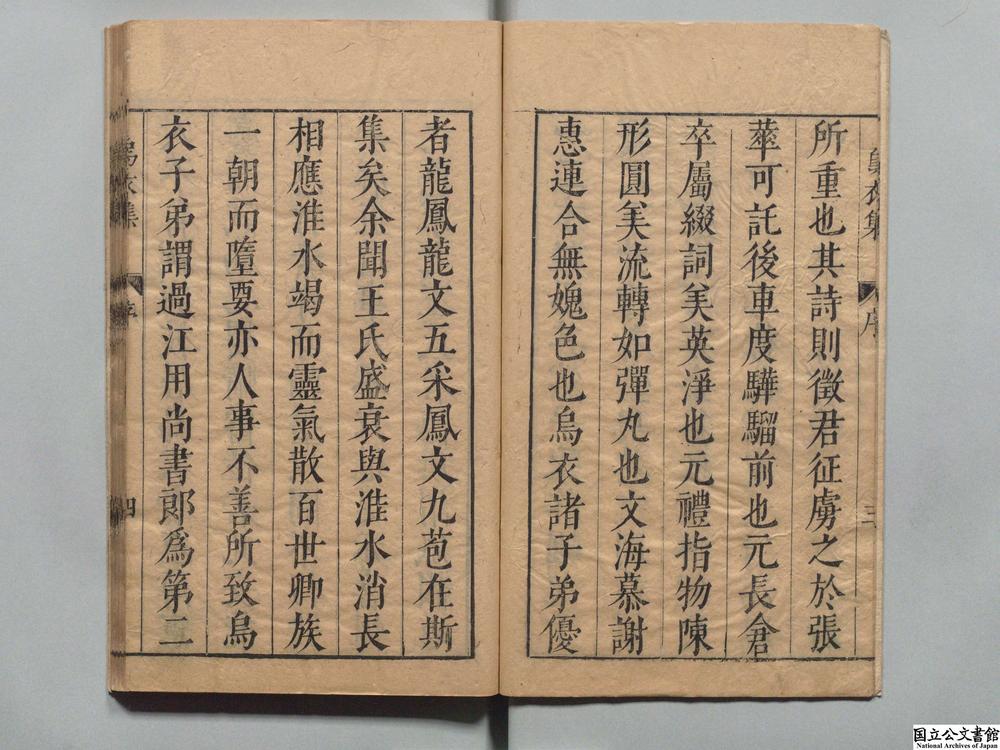 烏衣集
序
三
所重也其詩則徵君征虜之於張
華可託後車度驊騮前也元長倉
卒屬綴詞美英淨也元禮指物陳
形圓美流轉如彈丸也文海慕謝
惠連合無媿色也烏衣諸子弟優
者龍鳳龍文五采鳳文九苞在斯
集矣余聞王氏盛衰與淮水消長
相應淮水竭而靈氣散百世卿族
一朝而墮要亦人事不善所致烏
衣子弟謂過江用尚書郎為第二
烏衣集
序
四
国立公文書館
National Archives of Japan